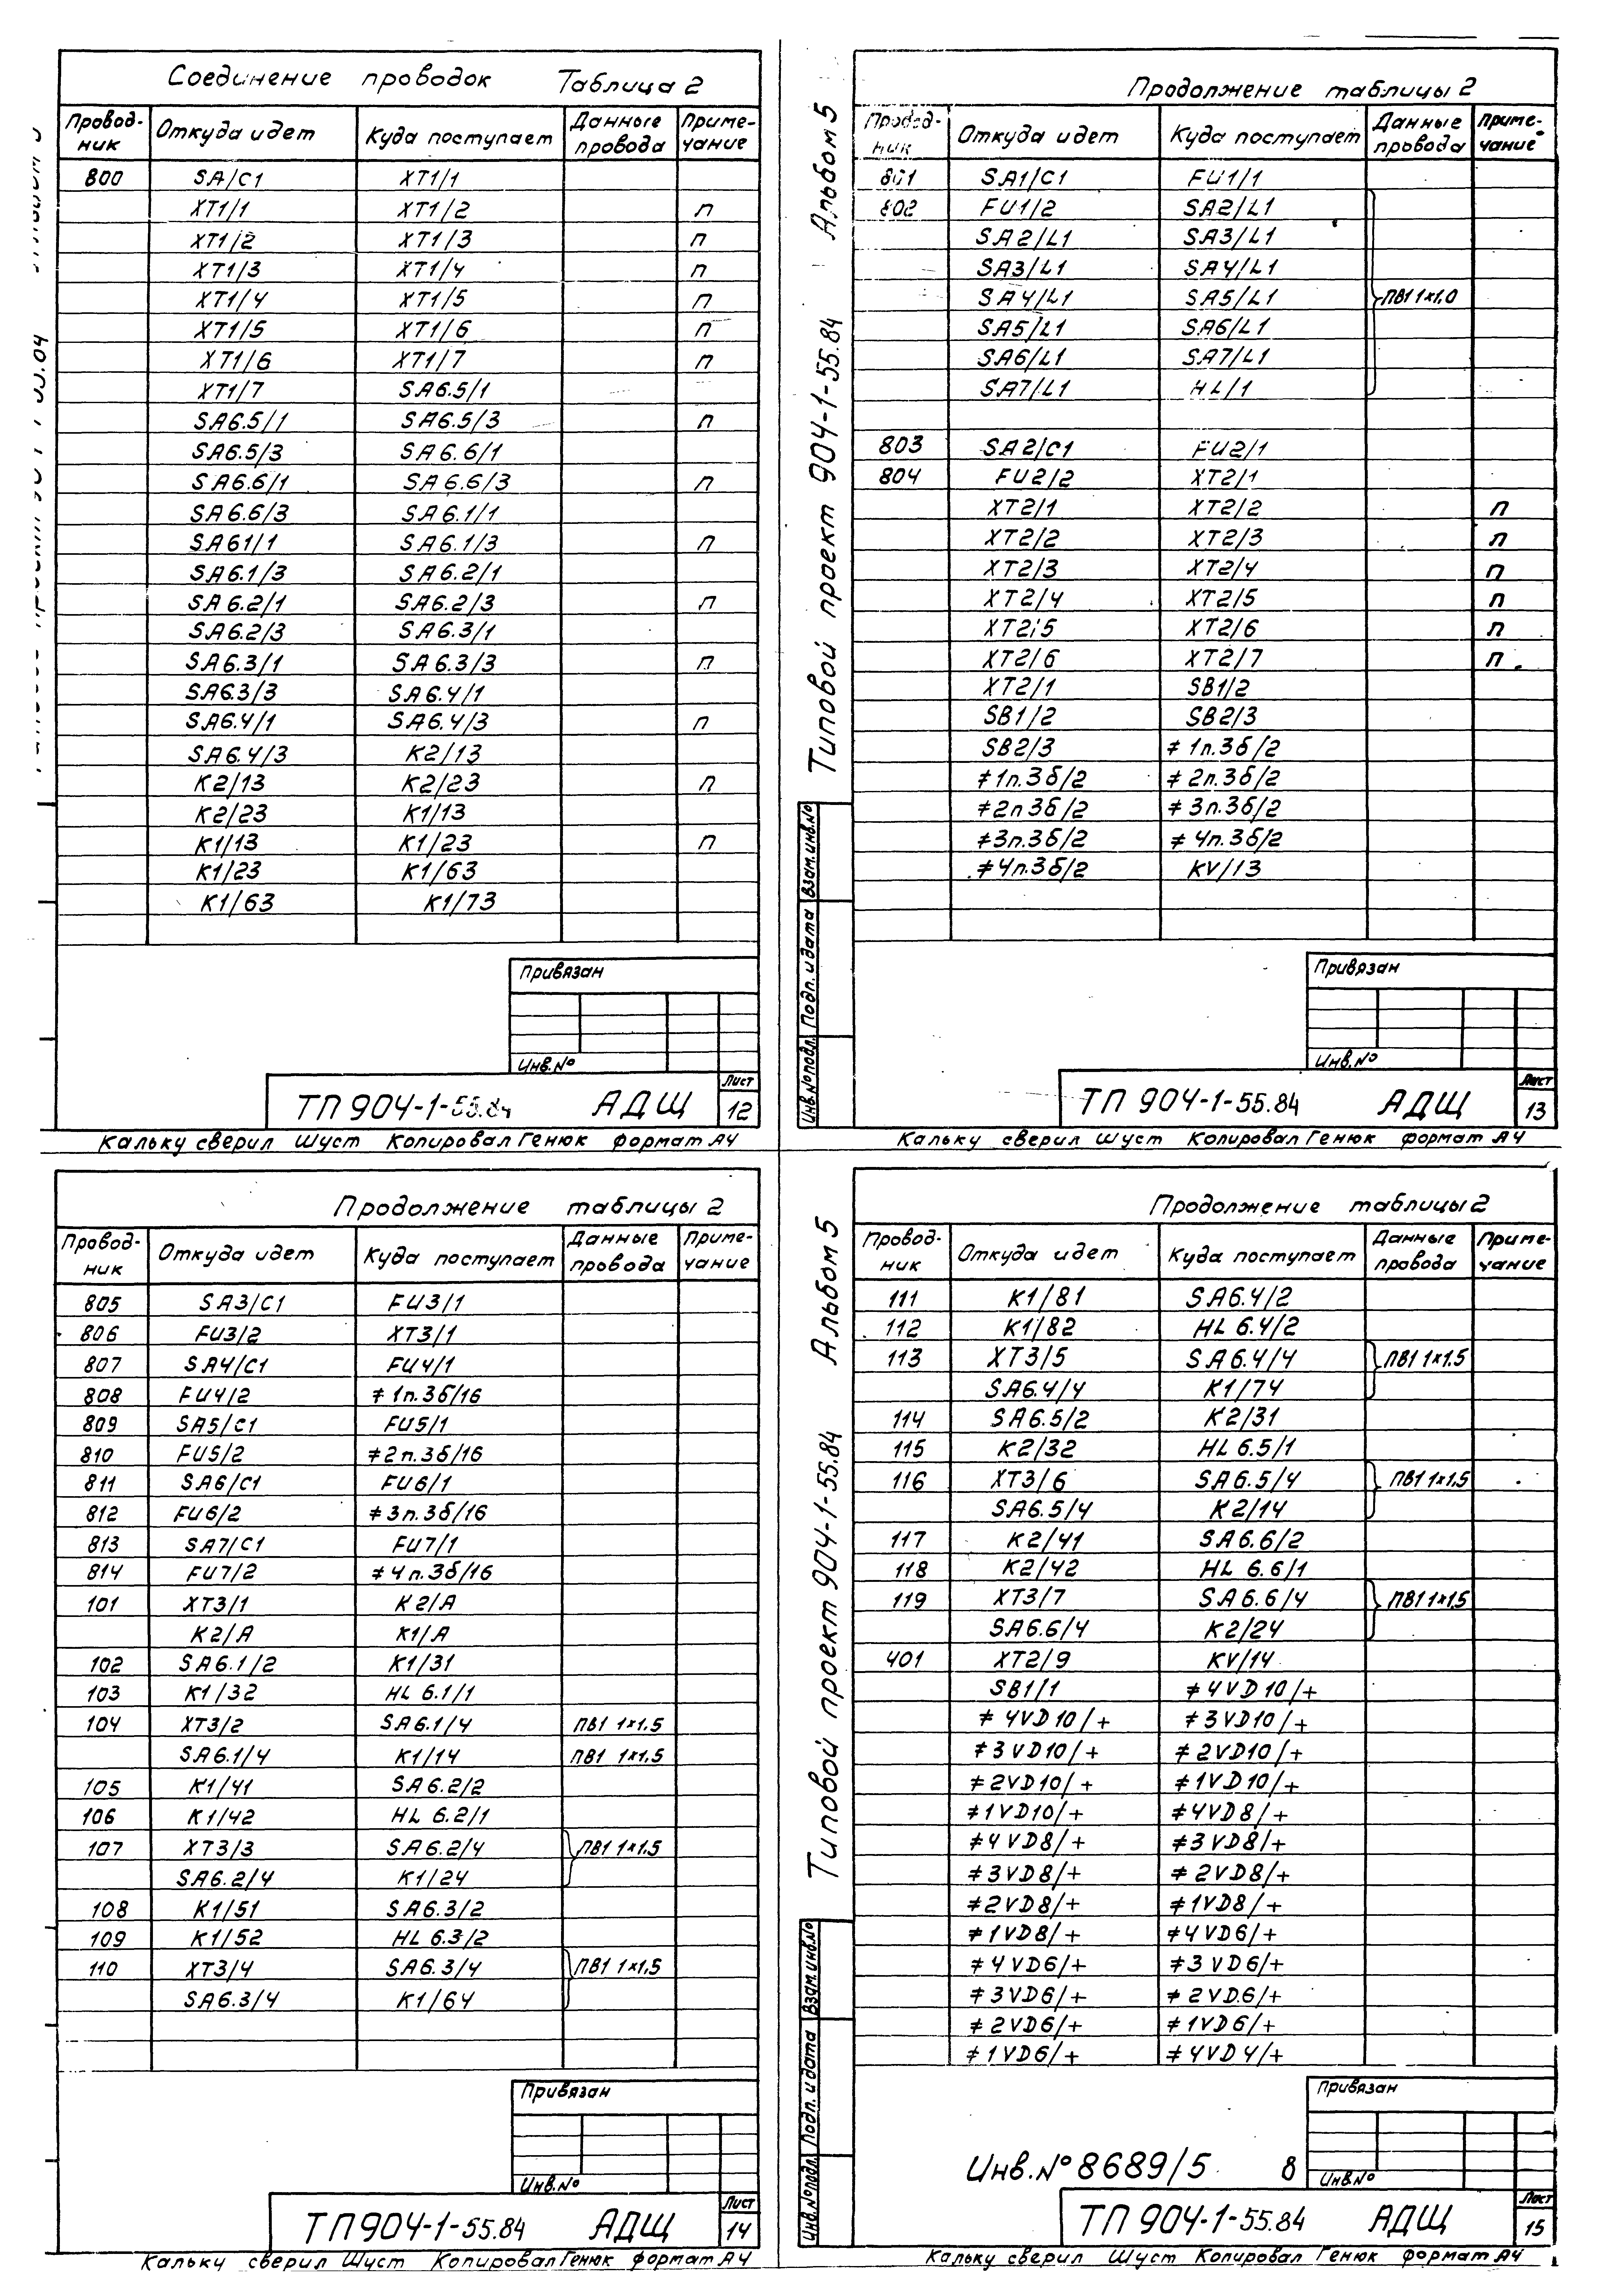 Соединение проводок Таблица 2
Провод-ник Откуда идет Куда поступает Данные провода Приме-чание
800 SA/C1 XT1/1
XT1/1 XT1/2 п
XT1/2 XT1/3 п
XT1/3 XT1/4 п
XT1/4 XT1/5 п
XT1/5 XT1/6 п
XT1/6 XT1/7 п
XT1/7 SA6.5/1
SA6.5/1 SA6.5/3 п
SA6.5/3 SA6.6/1
SA6.6/1 SA6.6/3 п
SA6.6/3 SA6.1/1
SA61/1 SA6.1/3 п
SA6.1/3 SA6.2/1
SA6.2/1 SA6.2/3 п
SA6.2/3 SA6.3/1
SA6.3/1 SA6.3/3 п
SA6.3/3 SA6.4/1
SA6.4/1 SA6.4/3 п
SA6.4/3 K2/13
K2/13 K2/23 п
K2/23 K1/13
K1/13 K1/23 п
K1/23 K1/63
K1/63 K1/73
Привязан
Инв.№
ТП 904-1-55.84 АДЩ Лист 12
Кальку сверил Шуст Копировал Генюк формат А4
Альбом 5
Типовой проект 904-1-55.84
Продолжение таблицы 2
Провод-ник Откуда идет Куда поступает Данные провода Приме-чание
801 SA1/C1 FU1/1
802 FU1/2 SA2/L1
SA2/L1 SA3/L1
SA3/L1 SA4/L1
SA4/L1 SA5/L1 ПВ1 1×1,0
SA5/L1 SA6/L1
SA6/L1 SA7/L1
SA7/L1 HL/1
803 SA2/C1 FU2/1
804 FU2/2 XT2/1
XT2/1 XT2/2 п
XT2/2 XT2/3 п
XT2/3 XT2/4 п
XT2/4 XT2/5 п
XT2/5 XT2/6 п
XT2/6 XT2/7 п
XT2/1 SB1/2
SB1/2 SB2/3
SB2/3 ≠1п.3б/2
≠1п.3б/2 ≠2п.3б/2
≠2п3б/2 ≠3п.3б/2
≠3п.3б/2 ≠4п.3б/2
≠4п.3б/2 KV/13
Инв.№подл. Подп. и дата Взам.инв.№
Привязан
Инв.№
ТП 904-1-55.84 АДЩ Лист 13
Кальку сверил Шуст Копировал Генюк формат А4
Продолжение таблицы 2
Провод-ник Откуда идет Куда поступает Данные провода Приме-чание
805 SA3/C1 FU3/1
806 FU3/2 XT3/1
807 SA4/C1 FU4/1
808 FU4/2 ≠1п.3б/16
809 SA5/C1 FU5/1
810 FU5/2 ≠2п.3б/16
811 SA6/C1 FU6/1
812 FU6/2 ≠3п.3б/16
813 SA7/C1 FU7/1
814 FU7/2 ≠4п.3б/16
101 XT3/1 K2/A
K2/A K1/A
102 SA6.1/2 K1/31
103 K1/32 HL 6.1/1
104 XT3/2 SA6.1/4 ПВ1 1×1,5
SA6.1/4 K1/14 ПВ1 1×1,5
105 K1/41 SA6.2/2
106 K1/42 HL 6.2/1
107 XT3/3 SA6.2/4 ПВ1 1×1,5
SA6.2/4 K1/24
108 K1/51 SA6.3/2
109 K1/52 HL 6.3/2
110 XT3/4 SA6.3/4 ПВ1 1×1,5
SA6.3/4 K1/64
Привязан
Инв.№
ТП 904-1-55.84 АДЩ Лист 14
Кальку сверил Шуст Копировал Генюк формат А4
Альбом 5
Типовой проект 904-1-55.84
Продолжение таблицы 2
Провод-ник Откуда идет Куда поступает Данные провода Приме-чание
111 K1/81 SA6.4/2
112 K1/82 HL 6.4/2
113 XT3/5 SA6.4/4 ПВ1 1×1,5
SA6.4/4 K1/74
114 SA6.5/2 K2/31
115 K2/32 HL 6.5/1
116 XT3/6 SA6.5/4 ПВ1 1×1,5
SA6.5/4 K2/14
117 K2/41 SA6.6/2
118 K2/42 HL 6.6/1
119 XT3/7 SA6.6/4 ПВ1 1×1,5
SA6.6/4 K2/24
401 XT2/9 KV/14
SB1/1 ≠4VD10/+
≠4VD10/+ ≠3VD10/+
≠3VD10/+ ≠2VD10/+
≠2VD10/+ ≠1VD10/+
≠1VD10/+ ≠4VD8/+
≠4VD8/+ ≠3VD8/+
≠3VD8/+ ≠2VD8/+
≠2VD8/+ ≠1VD8/+
≠1VD8/+ ≠4VD6/+
≠4VD6/+ ≠3VD6/+
≠3VD6/+ ≠2VD.6/+
≠2VD6/+ ≠1VD6/+
≠1VD6/+ ≠4VD4/+
Инв.№подл. Подп. и дата Взам.инв.№
Привязан
Инв.№ 8689/5 8 Инв.№
ТП 904-1-55.84 АДЩ Лист 15
Кальку сверил Шуст Копировал Генюк формат А4